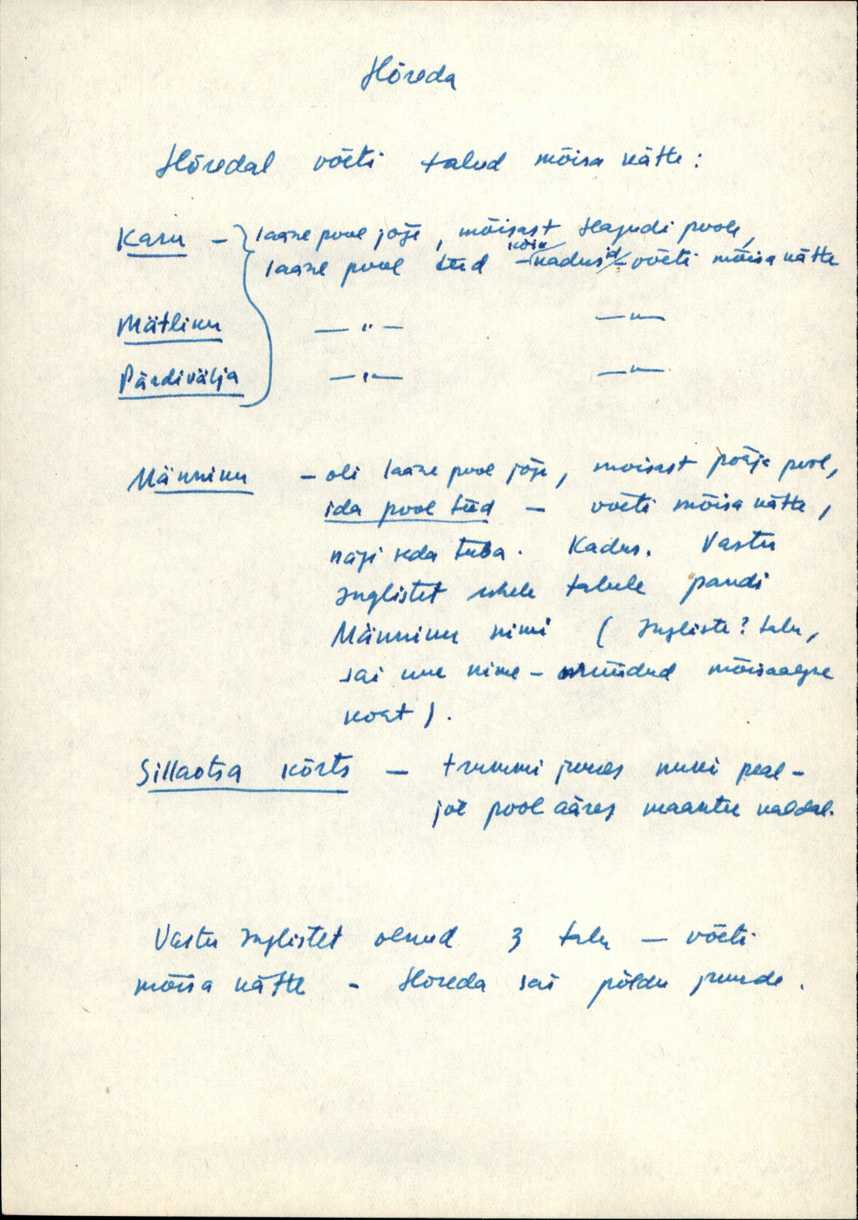 Hõreda
Hõredal võeti talud mõisa kätte:
Karu – lääne pool jõge, mõisast Hagudi poole,
kõik
lääne pool teed – kadusid – võeti mõisa kätte
Mätliku — " — — " —
Pärdivälja — " — — " —
Männiku – oli lääne pool jõge, mõisast põhja pool,
ida pool teed – võeti mõisa kätte,
nägi seda tuba. Kadus. Vastu
Inglistet ühele talule pandi
Männiku nimi (Ingliste? talu,
sai uue nime – mõisaaegne
koht).
Sillaotsa kõrts – trummi juures nuki peal –
jõe pool ääres maantee kaldal.
Vastu Inglistet olnud 3 talu – võeti
mõisa kätte – Hõreda sai põldu juurde.